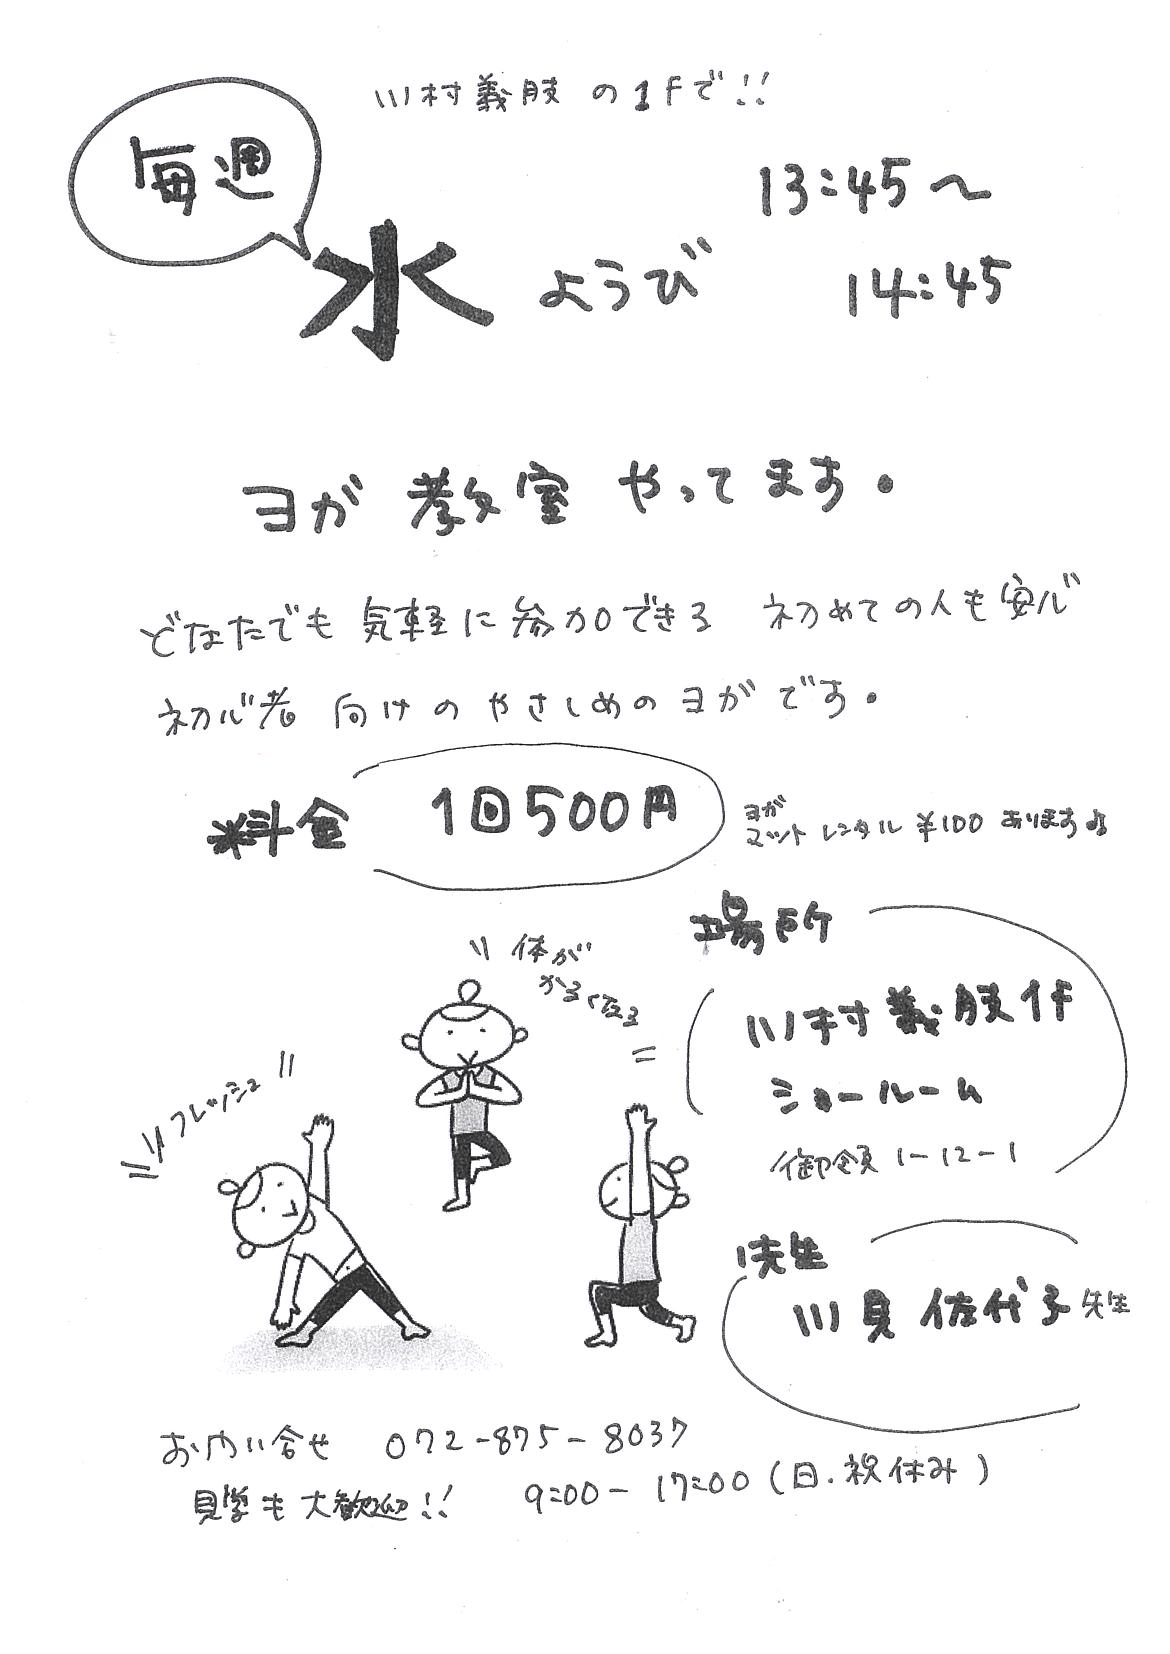 川村義肢の1Fで!!
毎週
水ようび
13:45～
14:45
ヨガ教室やってます。
どなたでも気軽に参加できる 初めての人も安心
初心者向けのやさしめのヨガです。
料金 1回500円
ヨガ
マット レンタル ¥100 あります♪
場所
川村義肢1F
ショールーム
御領1-12-1
体が
かるくなる
フレッシュ
先生
川見佐代子先生
お問い合せ 072-875-8037
見学も大歓迎!! 9:00-17:00(日.祝休み)